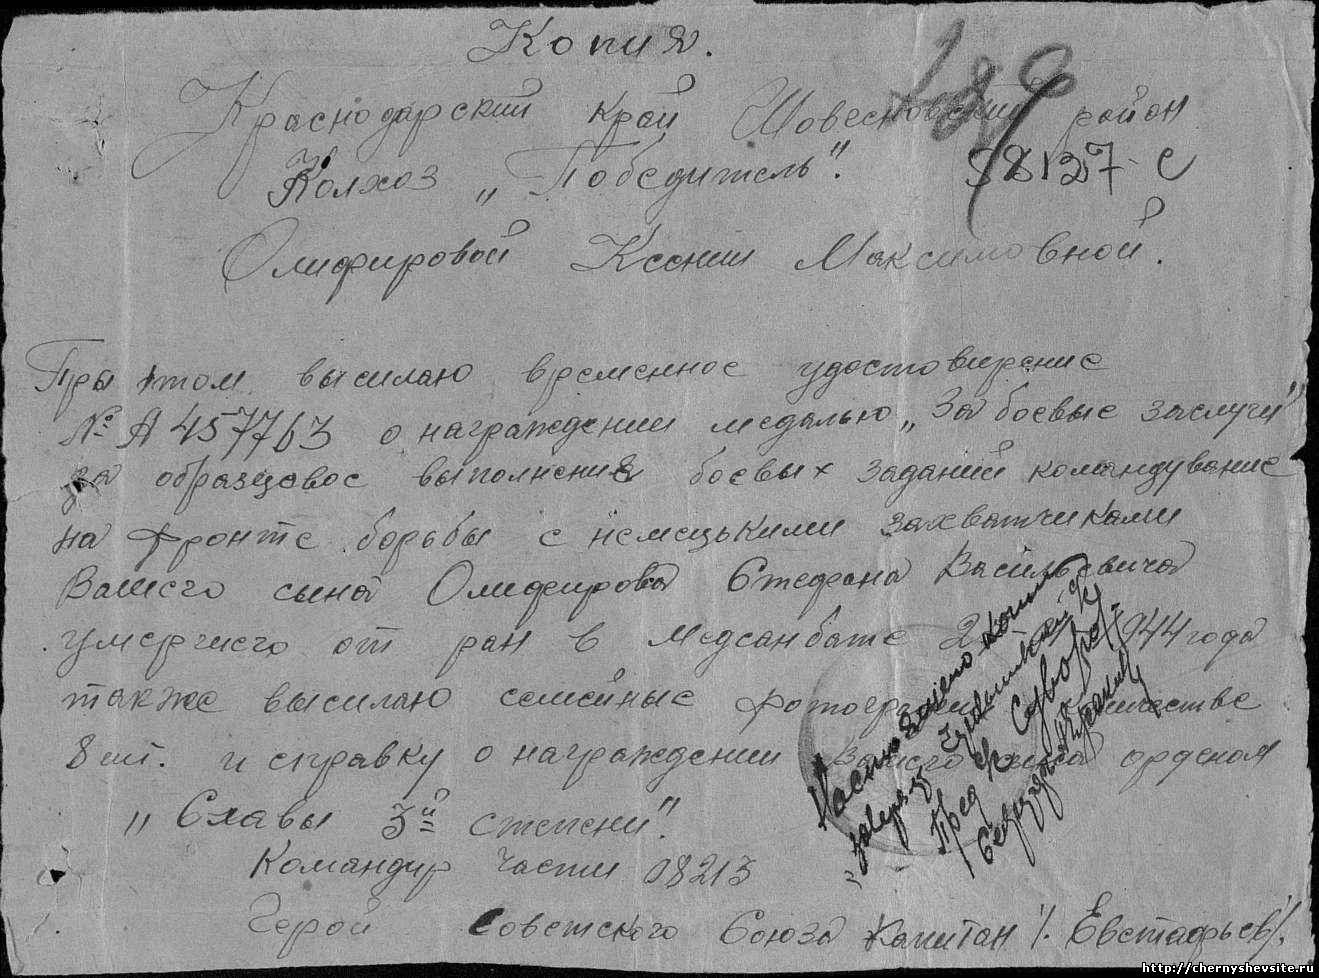 Копия.
Краснодарский край Шовесновский район
Колхоз „Победитель". 58127-с
Олифировой Ксении Максимовной.
При этом высилаю временное удостовирение
№ А 457763 о награждении медалью „За боевые заслуги"
за образцовое выполнение боевых заданий командувание
на фронте борьбы с немецькими захватчиками
Вашего сына Олифирова Стефана Васильевича
умершего от ран в Медсанбате 1944 года
также высилаю семейные фотографии количестве
8 шт. и справку о награждении Вашего сына орденом
„Славы 3й степени".
Командир части 08213
Герой Советского Союза Капитан /. Евстафьев/.
Настоящего копию
заверяу
Пред с/с Суворов
Секретарь
http://chernyshevsite.ru